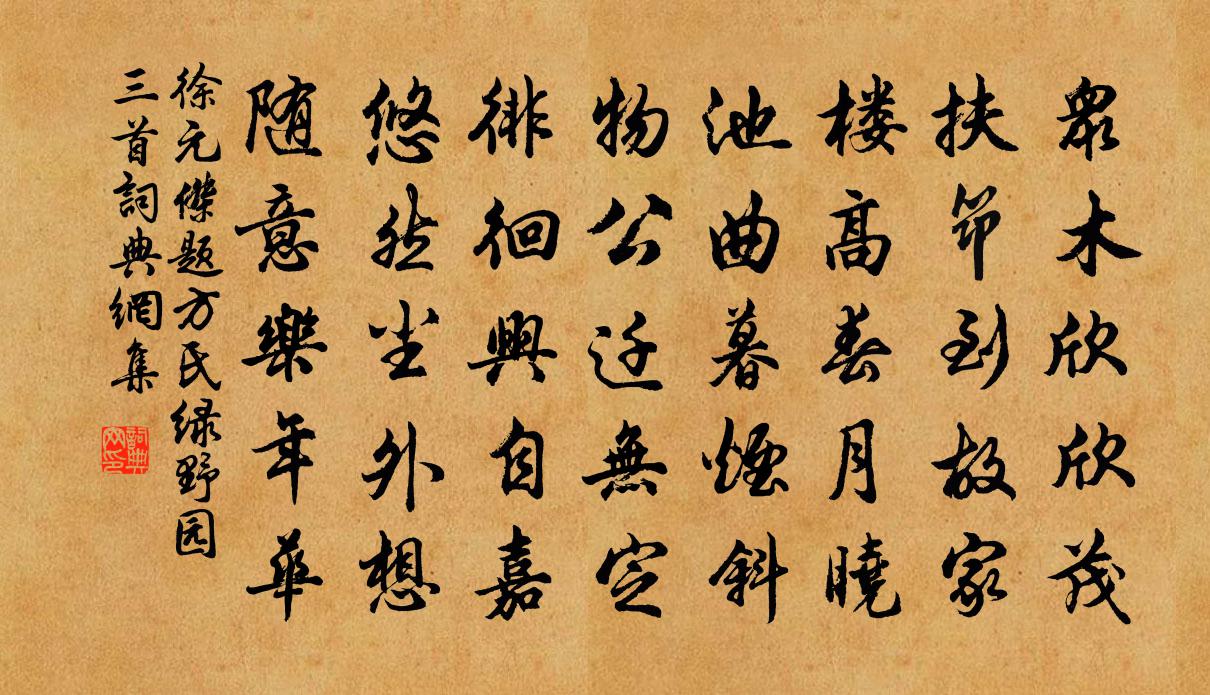 眾木欣欣茂
扶笻到故家
楼高春月曉
池曲暮煙斜
物公迁無定
徘徊興自嘉
悠然尘外想
随意樂年華
徐元傑题方氏绿野园
三首詞典網集
詞典
网印